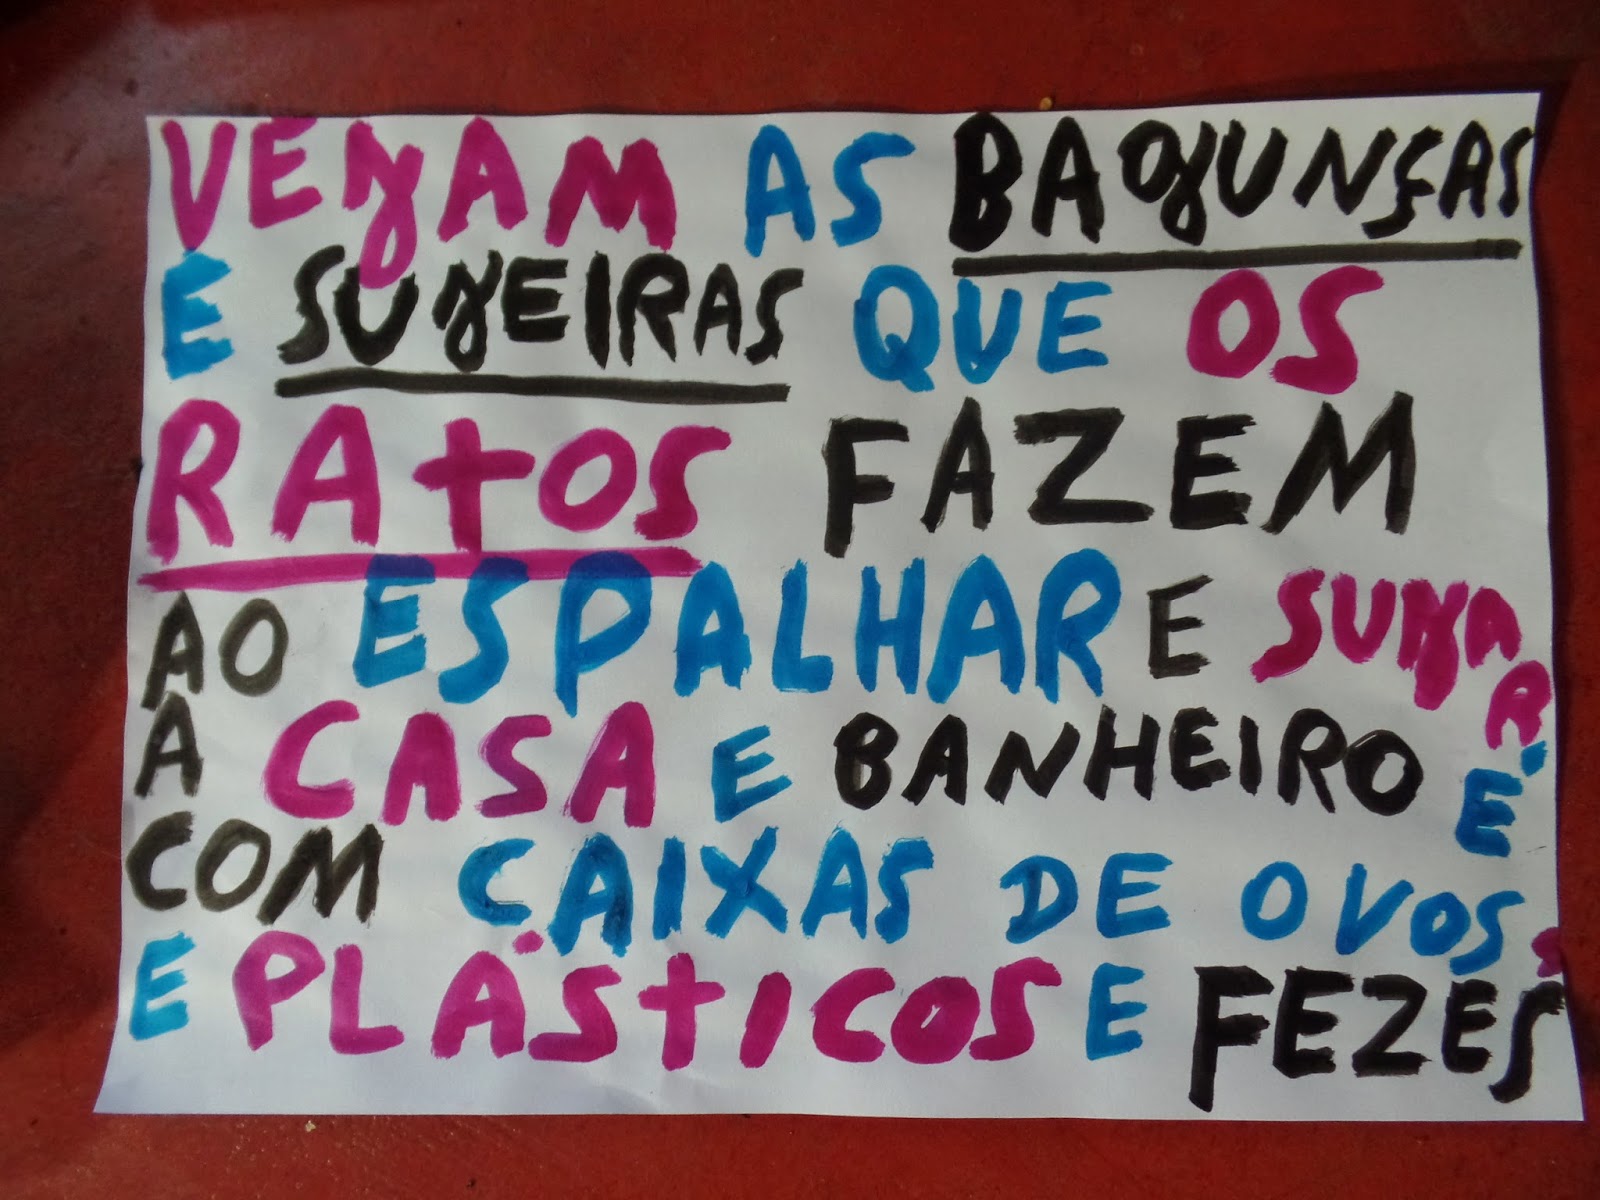 VEJAM AS BAGUNÇAS
E SUJEIRAS QUE OS
RATOS FAZEM
AO ESPALHAR E SUJAR
A CASA E BANHEIRO É
COM CAIXAS DE OVOS
E PLÁSTICOS E FEZES